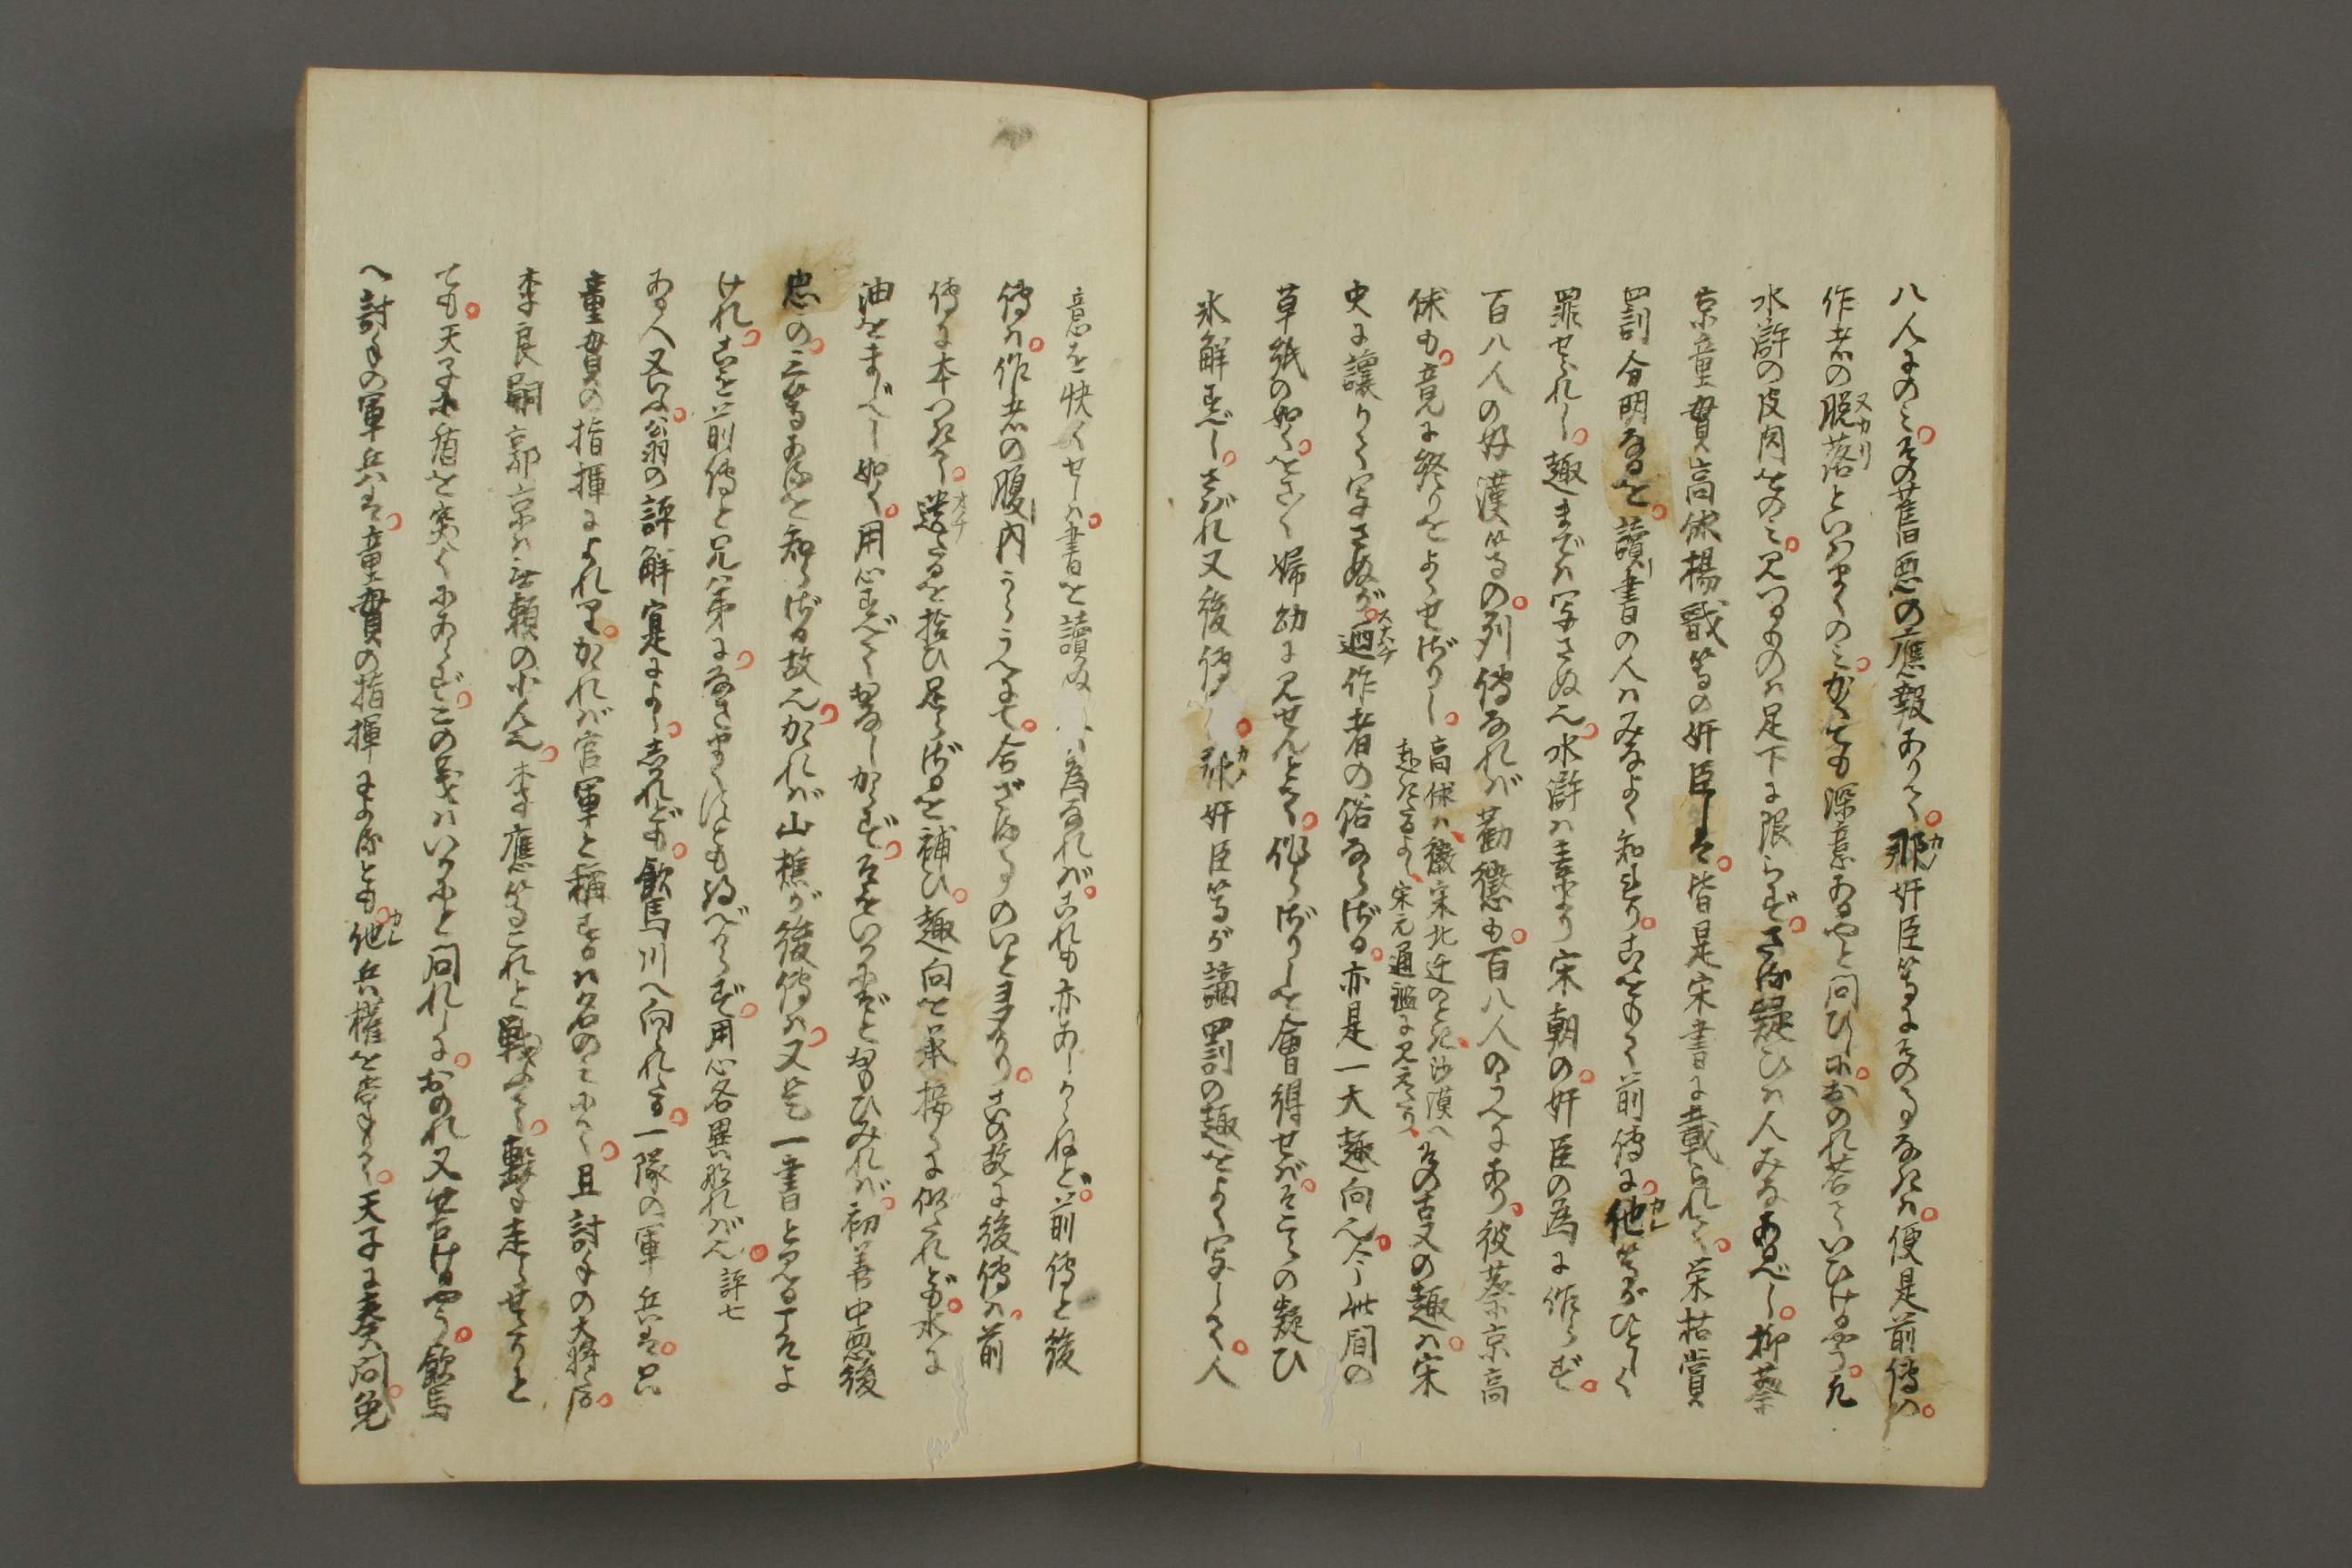 八人にのみその舊悪の應報ありて那奸臣等にそのことなきは便是前傳の
作者の脱落といはまくのみかくても深意あるやと問ひしにおのれ答ていひけるやう凡
水滸の皮肉をのみ見つるものは足下に限らずさる疑ひは人みなあるべし抑蔡
京童貫高俅楊戩等の奸臣しも皆是宋書に載られて榮枯賞
罰分明なるを讀書の人はみなよく知れりこゝをもて前傳に他等がひとしく
罪せられし趣までは写さぬ也水滸は素より宋朝の奸臣の為に作らず
百八人の好漢等の列傳なれば勸懲も百八人のうへにあり彼蔡京高
俅も竟に終りをよくせざりし
高俅は徽宗北迁のとき沙漠へ
赴きたるよし宋元通鑑に見えたり
その古文の趣は宋
史に讓りて写さぬが廼作者の俗ならざる亦是一大趣向也今世間の
草紙の如くをさ〳〵婦幼に見せんとて作らざりしを會得せばそこらの疑ひ
氷解すべしさばれ又後傳に那奸臣等が謫罰の趣をよく写して人
意を快くせしは書を讀ぬ人の為なればこれも亦あしからねど前傳と後
傳は作者の腹内うらうへにて合ざることのいと多かりこの故に後傳は前
傳に本つきて遺たるを拾ひ足らざるを補ひ趣向を承接くに似たれども水に
油をまじへし如く用心すべておなじからずそをいかにぞとおもひみれば初善中悪後
忠の三等あるを知らざる故也かゝれば山樵が後傳は又是一書と見るこそよ
けれこを前傳と兄弟になさまくほとも得べからず用心各異なれば也 評七
ある人又いふ翁の評解寔によししかれども飲馬川へ向られたる一隊の軍兵は只
童貫の指揮によれりかゝれば官軍と稱するは名のみにて且討手の大将たる
李良嗣郭京は無頼の小人也李應等これと戰ふて撃て走らせたりと
ても天子に矛盾を突くにあらずこの義はいかにと問れしにおのれ又答けるやう飲馬
へ討手の軍兵は童貫の指揮によるとも他兵權を掌りて天子に奏問免